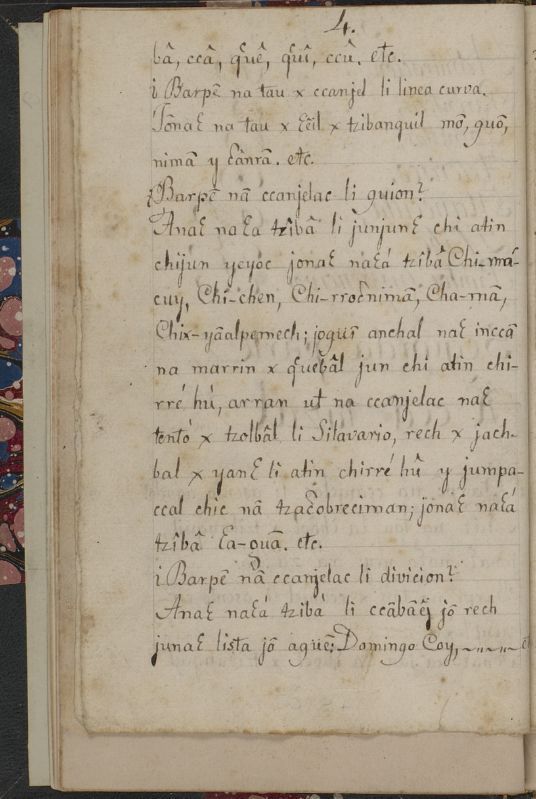 4.
bâ, ccâ, q̃uê, q̃uî, ccû. etc.
¿Barpē na tau x ccanjel li linea curva.
Jōnaƹ na tau x ƹēil x tzibanquil mō, guō,
nimā y ƹānrā. etc.
¿Barpē nā ccanjelac li guion?
Anaƹ naƹa tzîbâ li junjunƹ chi atin
chijun yeyoc jonaƹ naƹá tzibâ Chi-má-
cuy, Chi-chen, Chi-rroc̃nimā, Cha-mā,
Chix-yāalpemech; joguī anchal naƹ inccā
na marrin x q̃uebâl jun chi atin chi-
rré hú, arran ut na ccanjelac naƹ
tentó x tzolbâl li Silavario, rech x jach-
bal x yanƹ li atin chirré hû y jumpa-
ccal chic nā tzac̃obreciman; jónaƹ naƹá
tzîbâ ƹa-guâ. etc.
¿Barpē nā ccanjelac li divicion?
Anaƹ naƹá tzibà li ccābāēj jō rech
junaƹ lista jō aguē: Domingo Coy,